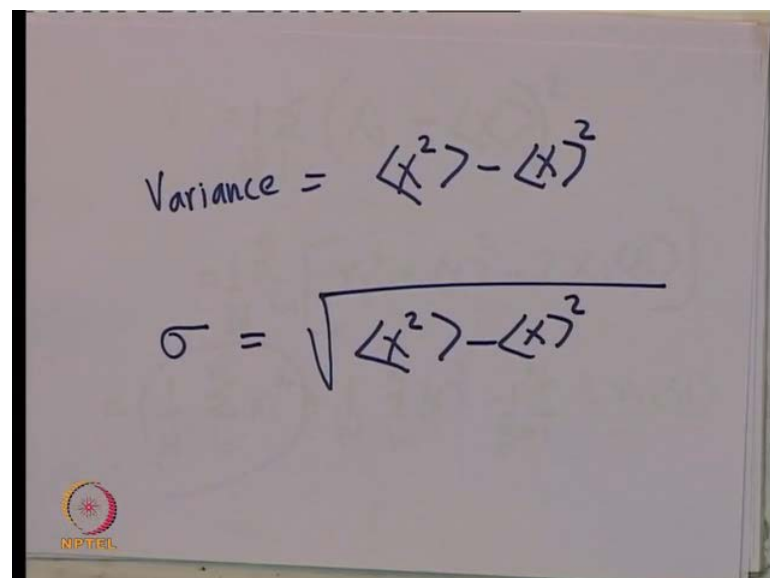 Variance = <x²> - <x>²
σ = √<x²> - <x>²
NPTEL